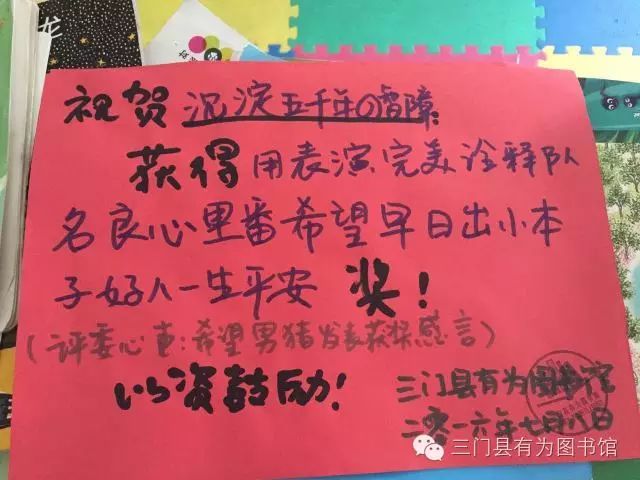 龙
祝贺 沉淀五千年の智障
获得 用表演完美诠释队
名良心里番希望早日出小本
子好人一生平安 奖！
（评委心束：希望男猪发表获奖感言）
以资鼓励！
三门县有为图书馆
二零一六年七月八日
三门县有为图书馆